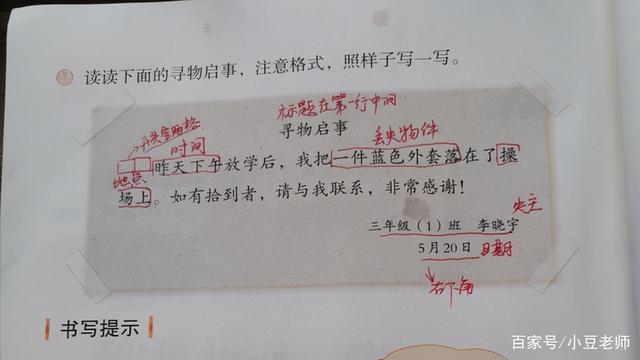 读读下面的寻物启事，注意格式，照样子写一写。
标题在第一行中间
寻物启事
开头空两格
时间
丢失物件
昨天下午放学后，我把一件蓝色外套落在了操
地点
场上。如有拾到者，请与我联系，非常感谢！
失主
三年级（1）班 李晓宇
5月20日 日期
右下角
书写提示
百家号/小豆老师